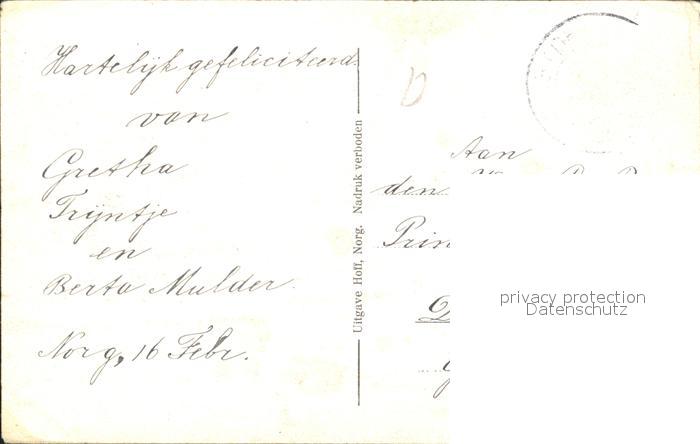 Hartelijk gefeliciteerd
van
Gretha
Trijntje
en
Berta Mulder
Norg, 16 Febr.
Uitgave Hoff, Norg. Nadruk verboden
Aan
den
Prin
privacy protection
Datenschutz